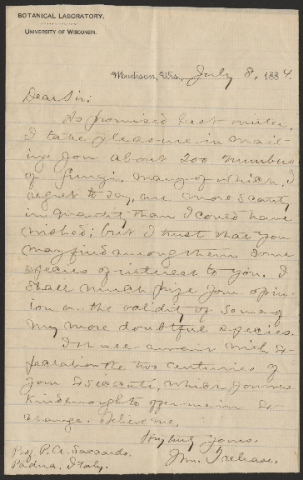 BOTANICAL LABORATORY,
UNIVERSITY OF WISCONSIN.
Madison, Wis., July 8, 1884.
Dear Sir:
As promised last winter,
I take pleasure in mail-
ing you about 200 numbers
of fungi, many of which, I
regret to say, are more scanty
in quantity than I could have
wished; but I trust that you
may find among them some
species of interest to you. I
shall much prize your opin-
ion on the validity of some of
my more doubtful species.
I await with
the two centuries of
your which you were
kind enough to offer me in ex-
change. Believe me,
Very truly yours,
Wm. Trelease.
Prof. P. A. Saccardo,
Padua, Italy.